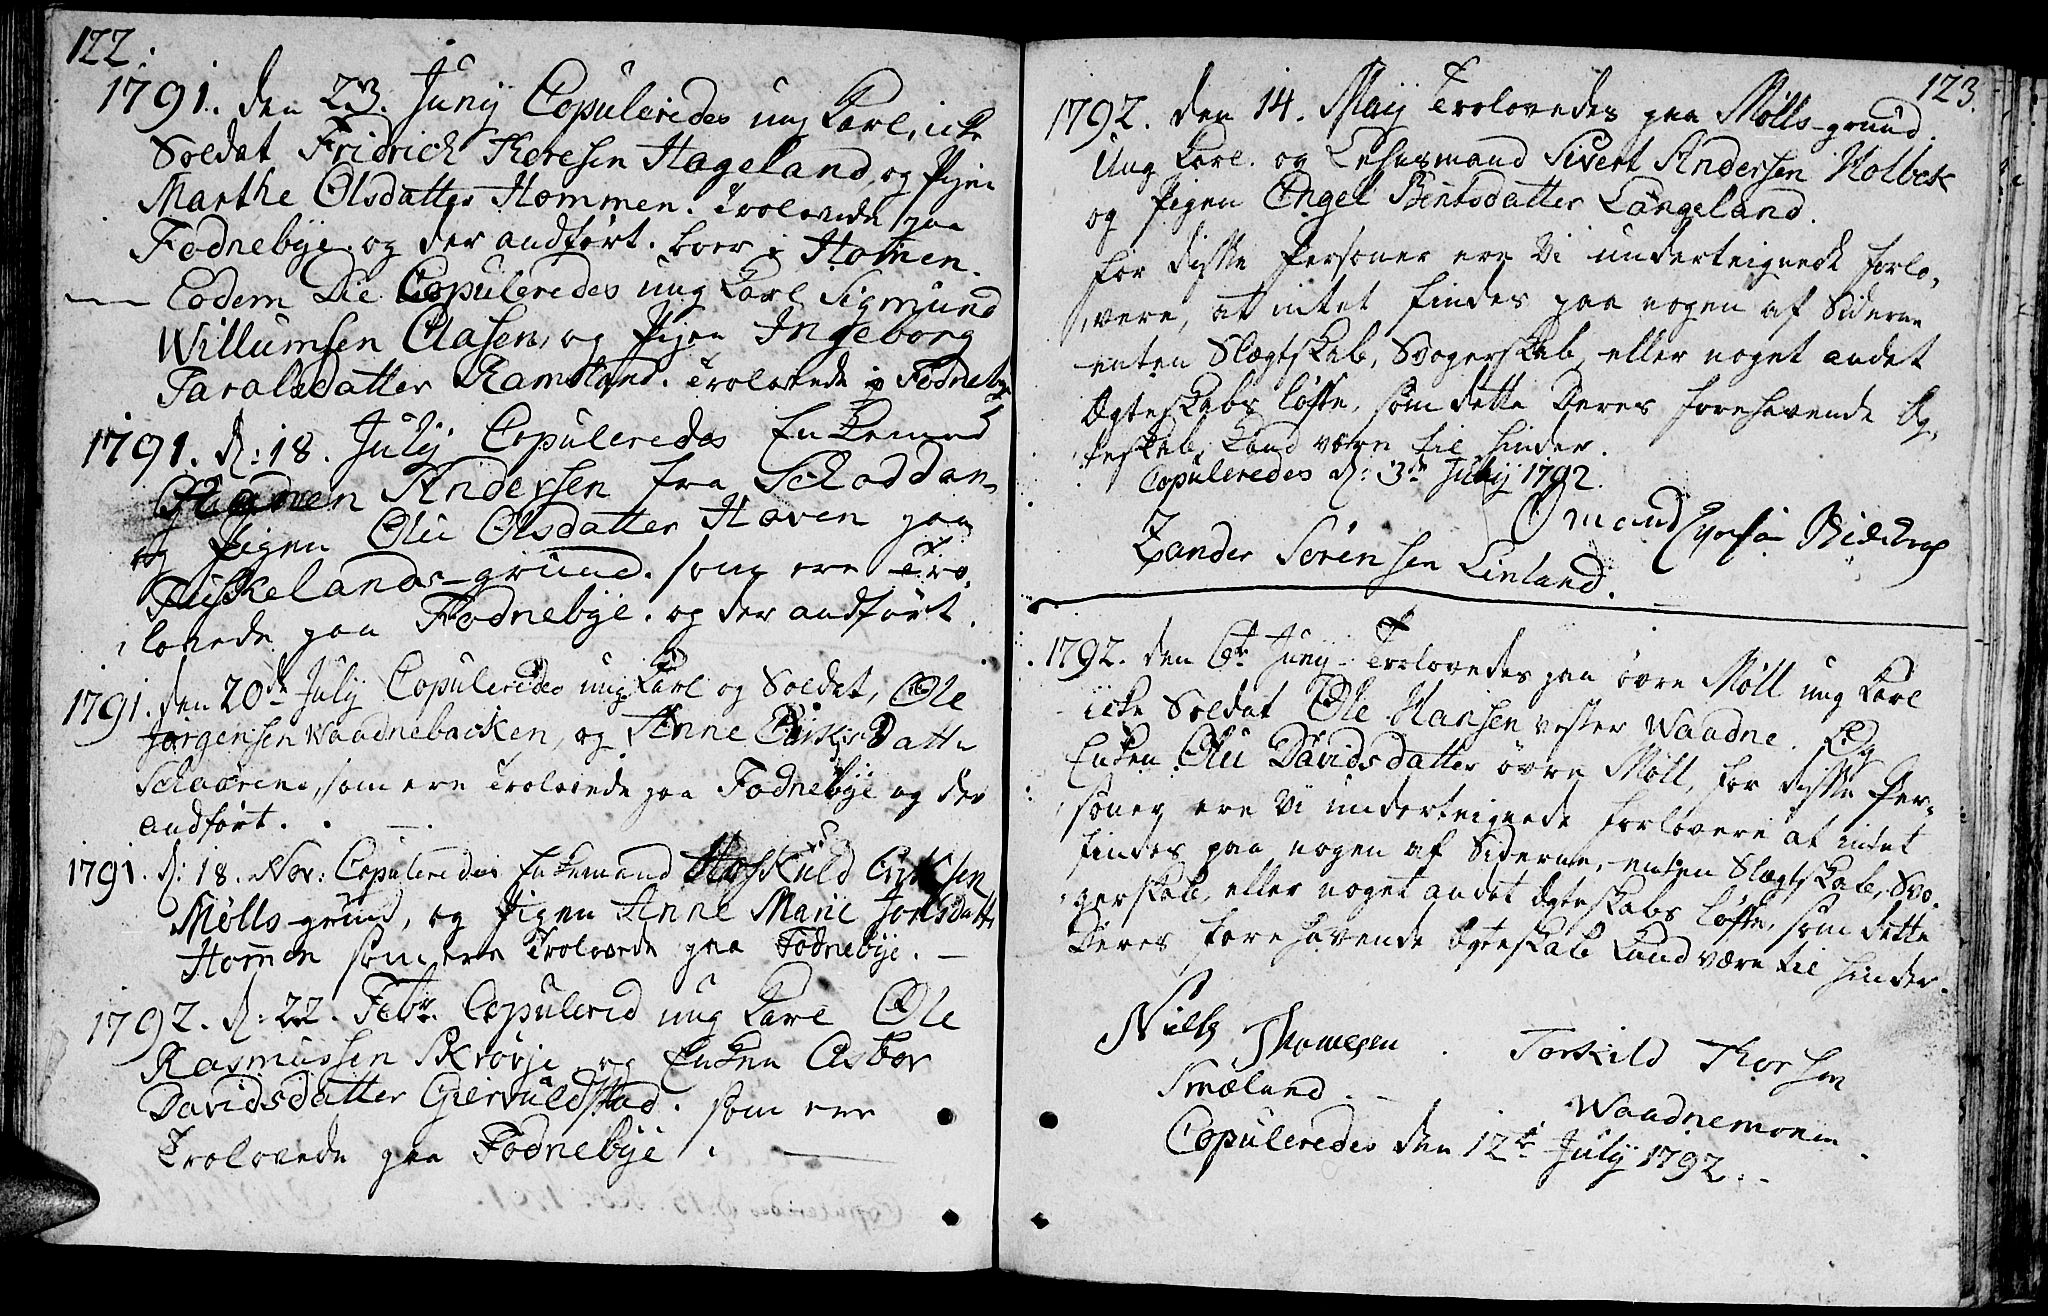 122.
1791. den 23. Junij Copuleredes ung Karl, icke
Soldat Fridrich Theresen Hageland, og Pigen
Marthe Olsdatter Hommen. Trolovede paa
Fodnebye. og der andført. boer i Homen.
Eodem Die Copuleredes ung Karl Sigmund
Willumsen Aasen, og Pigen Ingeborg
Taralsdatter Ramsland. Trolovede i Fodnebye
1791. d: 18. Julij Copuleredes Enkemand
Andersen fra Schoddan,
og Pigen Oli Olsdatter Haven paa
Fuskelands-grund. som ere Tro,
lovede paa Fodnebye. og der andført.
1791. den 20de July Copuleredes ung Karl og Soldat, Ole
Jørgensen Waadnebacken, og Anne Eriksdatter
Schaarene, som ere Trolovede paa Fodnebye og der
andført.
1791. d: 18. Nov: Copuleredes Enkemand Hoskuld Eriksen
Mølls-grund, og Pigen Anne Marie Jonsdatter
Hommen som ere Trolovede paa Fodnebye.
1792. d: 22. Febr. Copulered ung Karl Ole
Rasmussen Skrøvje og Enken Asbor
Davidsdatter Giervuldstad. som ere
Trolovede paa Fodnebye.
123.
1792. den 14. Maij Trolovedes paa Mølls-grund.
Ung Karl. og Lehnsmand Sivert Andersen Holbek
og Pigen Engel Bentsdatter Langeland.
for disse Personer ere Vi underteignede forlo,
vere, at intet findes paa nogen af Siderne
enten Slægtskab, Svogerskab, eller noget andet
Ægteskabs løfte, som dette Deres forehavende Æg,
teskab, Kand være til hinder.
Copuleredes d: 3de July 1792.
Omund
Zander Sørensen Linland.
1792. den 6te Juny Trolovedes paa øvre Møll ung Karl
icke Soldat Ole Hansen vester Waadne. Og
Enken Oli Davidsdatter øvre Møll, for disse Per-
soner ere Vi underteignede forlovere at intet
findes paa nogen af Siderne, enten Slægtskab, Svo,
gerskab, eller noget andet Ægteskabs løfte, som dette
Deres forehavende Ægteskab Kand være til hinder.
Niels Thomesen Torkild Thorsen
Smæland. Waadnemonen
Copuleredes den 12te Julij 1792.